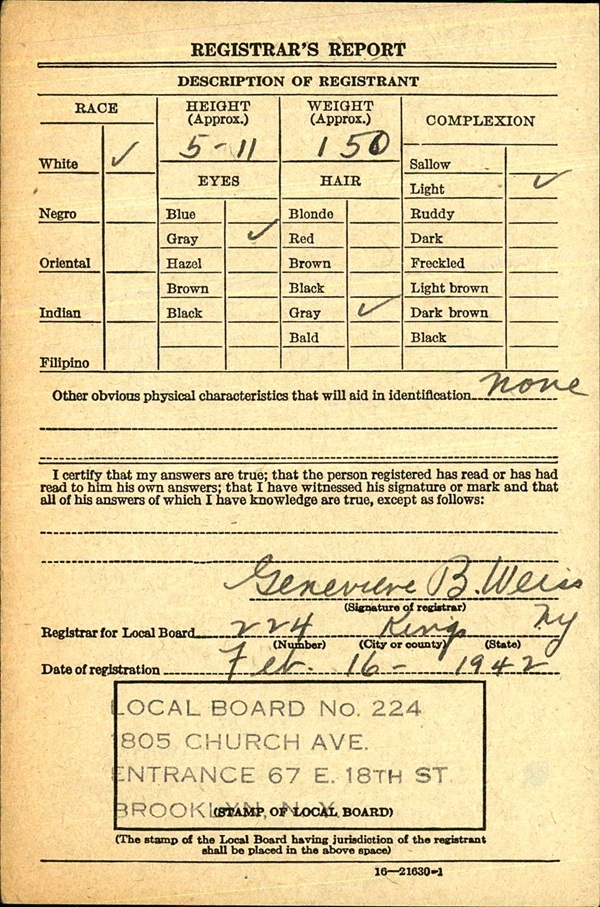 REGISTRAR'S REPORT
DESCRIPTION OF REGISTRANT
RACE
HEIGHT
(Approx.)
WEIGHT
(Approx.)
COMPLEXION
5-11
150
White ✓
EYES
HAIR
Sallow
Light ✓
Negro
Blue
Blonde
Ruddy
Gray ✓
Red
Dark
Oriental
Hazel
Brown
Freckled
Brown
Black
Light brown
Indian
Black
Gray ✓
Dark brown
Bald
Black
Filipino
Other obvious physical characteristics that will aid in identification none
I certify that my answers are true; that the person registered has read or has had
read to him his own answers; that I have witnessed his signature or mark and that
all of his answers of which I have knowledge are true, except as follows:
Genevieve B. Weiss
(Signature of registrar)
Registrar for Local Board 224 Kings Ny
(Number) (City or county) (State)
Date of registration Feb. 16- 1942
LOCAL BOARD No. 224
1805 CHURCH AVE.
ENTRANCE 67 E. 18TH ST.
BROOKLYN, N. Y.
(STAMP OF LOCAL BOARD)
(The stamp of the Local Board having jurisdiction of the registrant
shall be placed in the above space)
16—21630-1